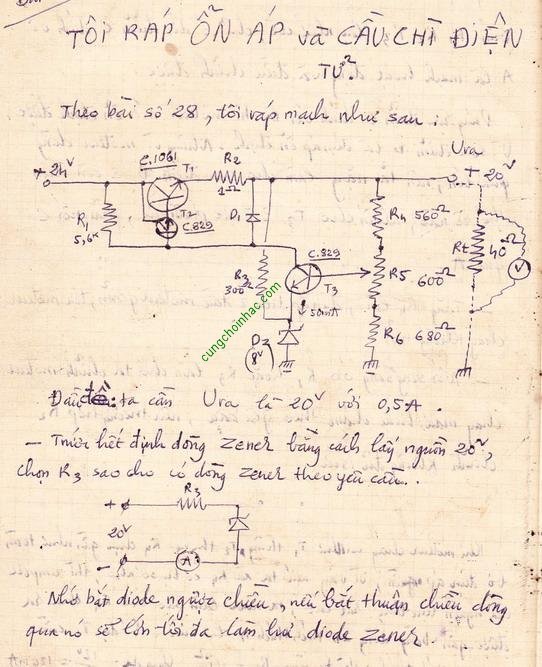 TÔI RÁP ỔN ÁP và CẦU CHÌ ĐIỆN
TỬ.
Theo bài số 28, tôi ráp mạch như sau :
C.1061
T1
R2
1Ω
Ura
+ 24V
+ 20V
R1
5,6K
T2
C.829
D1
R4 560Ω
Rt
40Ω
V
R3
300Ω
C.829
T3
50mA
R5
600Ω
DZ
(8V)
R6 680Ω
cungchoinhac.com
Đầu đề: ta cần Ura là 20V với 0,5A.
– Trước hết định dòng zener bằng cách lấy nguồn 20V,
chọn R3 sao cho có dòng zener theo yêu cầu.
R3
+
20V
–
A
Nhớ bắt diode ngược chiều, nếu bắt thuận chiều dòng
qua nó sẽ lớn tối đa làm hư diode zener.